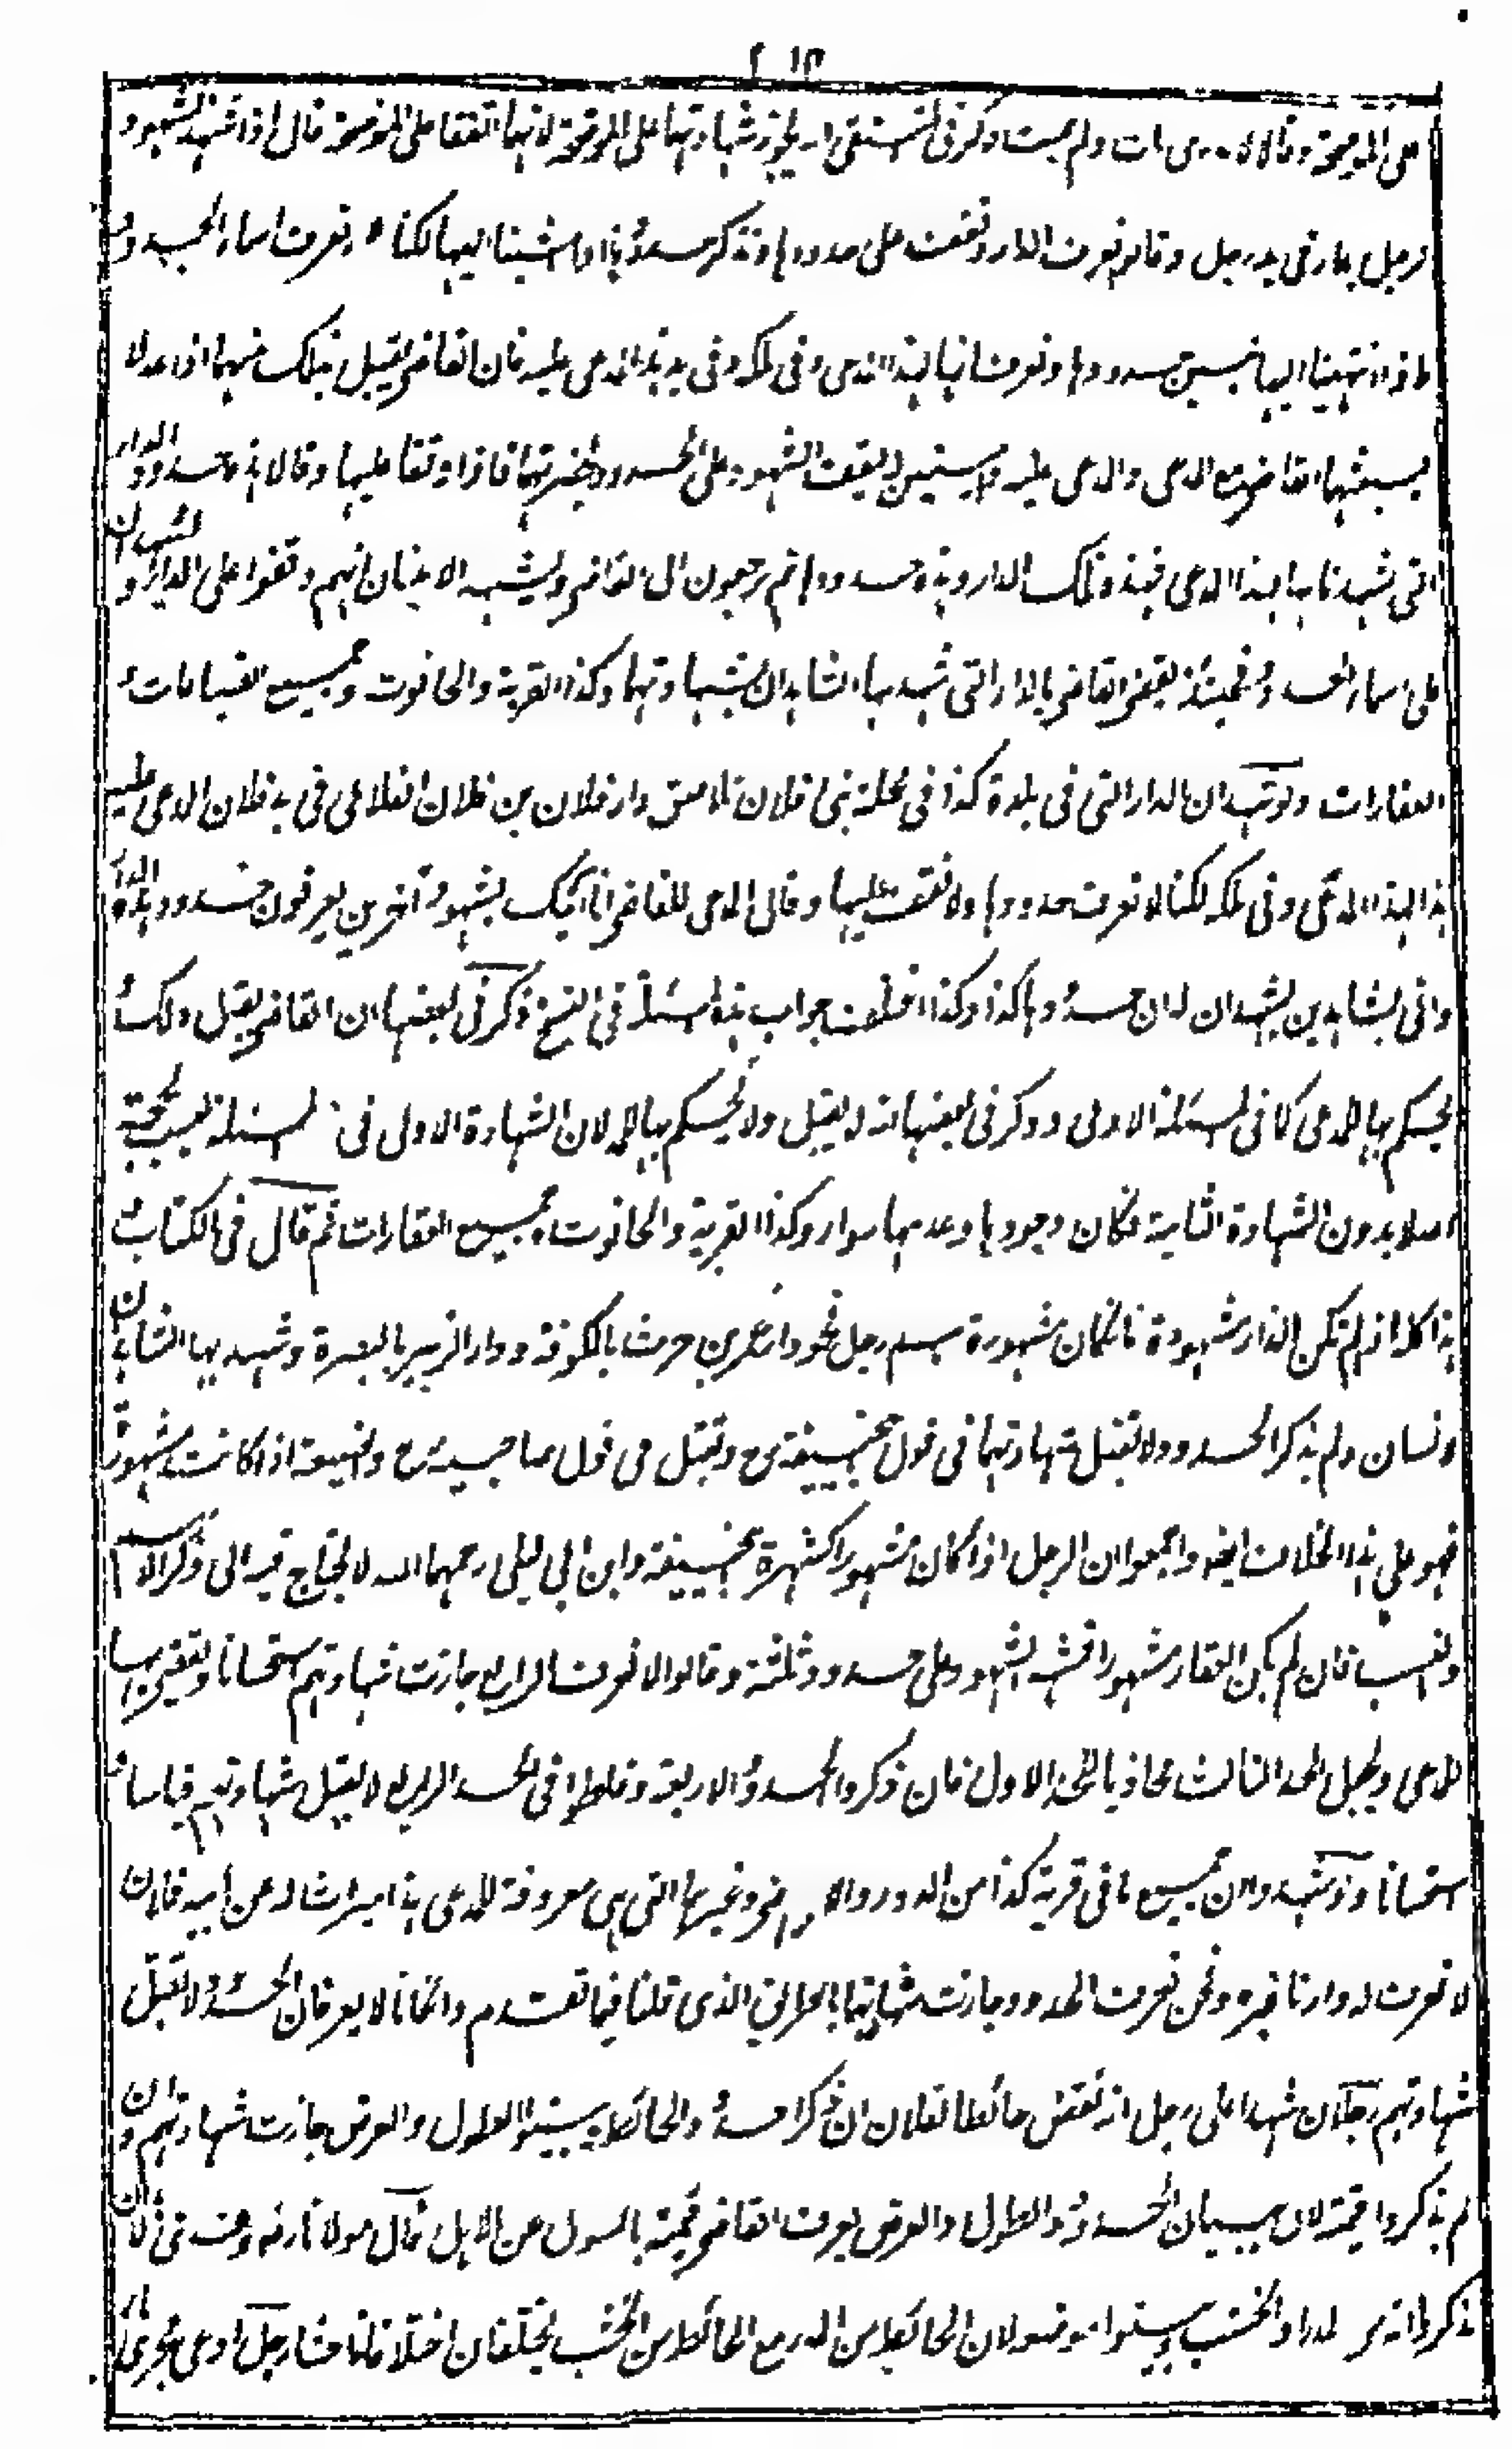 على الموضحة وقالا لا ندري مات ولم يمت وذكر في المنتقى انه يجوز شهادتهما على الموضحة لانهما اتفقا على الموضحة قال اذا شهد الشهود
لرجل بدار في يد رجل وقالوا نعرف الدار ونقف على حدودها ونذكر حدودها اذا مشينا اليها لكنا لا نعرف اسماء الحدود
فاذا انتهينا اليها نبين حدودها ونعرف انها لهذا المدعي وفي ملكه وفي يد هذا المدعى عليه فان القاضي يقبل ذلك منهما اذا عدلا
ويبعثهما القاضي مع المدعي والمدعى عليه وامينين ليقف الشهود على الحدود بحضرتهما فاذا وقفا عليها وقالا هذه حدود الدار
التي شهدنا بها لهذا المدعي فهذه تلك الدار وهذه حدودها ثم يرجعون الى القاضي ويشهد الامينان انهم وقفوا على الدار وشهدا
على اسماء الحدود فحينئذ يقضي القاضي بالدار التي شهد بها الشاهدان بشهادتهما وكذا القرية والحانوت وجميع الضياعات و
العقارات ولو شهدا ان الدار التي في بلدة كذا في محلة بني فلان تلاصق دار فلان بن فلان الفلاني في يد فلان المدعى عليه
هذا لهذا المدعي وفي ملكه لكنا لا نعرف حدودها ولا نقف عليها وقال المدعي للقاضي انا آتيك بشهود آخرين يعرفون حدود هذه الدار
واتى بشاهدين يشهدان ان حدودها كذا وكذا اختلف جواب هذه المسئلة في النسخ ذكر في بعضها ان القاضي يقبل ذلك و
يحكم بها للمدعي كما في المسئلة الاولى وذكر في بعضها انه لا يقبل ولا يحكم بها له لان الشهادة الاولى في المسئلة ليست بحجة
اصلا بدون الشهادة الثانية فكان وجودها وعدمها سواء وكذا القرية والحانوت وجميع العقارات ثم قال في الكتاب
هذا كله اذا لم تكن الدار مشهودة فان كان مشهورة باسم رجل نحو دار عمر بن حرث بالكوفة ودار الزبير بالبصرة وشهد بها الشاهدان
لانسان ولم يذكر الحدود ولا تقبل شهادتهما في قول ابي حنيفة رح وتقبل في قول صاحبيه رح والضيعة اذا كانت مشهورة
فهو على هذا الخلاف ايضا واجمعوا ان الرجل اذا كان مشهورا كشهرة ابي حنيفة وابن ابي ليلى رحمهما الله لا يحتاج فيه الى ذكر الاسم
والنسب فان لم يكن العقار مشهورا فشهد الشهود على حدود ثلثة وقالوا لا نعرف الرابع جازت شهادتهم استحسانا ويقضي بها
للمدعي ويجعل الحد الثالث محاذيا للحد الاول فان ذكروا الحدود الاربعة وغلطوا في الحد الرابع لا يقبل شهادتهم قياسا و
استحسانا ولو شهدوا ان جميع ما في قرية كذا من الدور والاراضي وغيرها التي هي معروفة للمدعي هذا ميراث له عن ابيه فلان
لا نعرف له وارثا غيره ونحن نعرف الحدود جازت شهادتهما بالطريق الذي قلنا فيما تقدم وان كانا لا يعرفان الحدود لا تقبل
شهادتهم رجلان شهدا على رجل انه نقض حائطا لفلان ان ذكرا حدود الحائط وبينوا الطول والعرض جازت شهادتهم وان
لم يذكروا قيمة لان ببيان الحدود والطول والعرض يعرف القاضي قيمته بالسول عن الاهل قال مولانا رضه
ذكروا انه من المدر او الخشب وبينوا موضعه لان الحائط من المدر مع الحائط من الخشب يختلفان اختلافا فاحشا رجل ادعى مجرى ماء